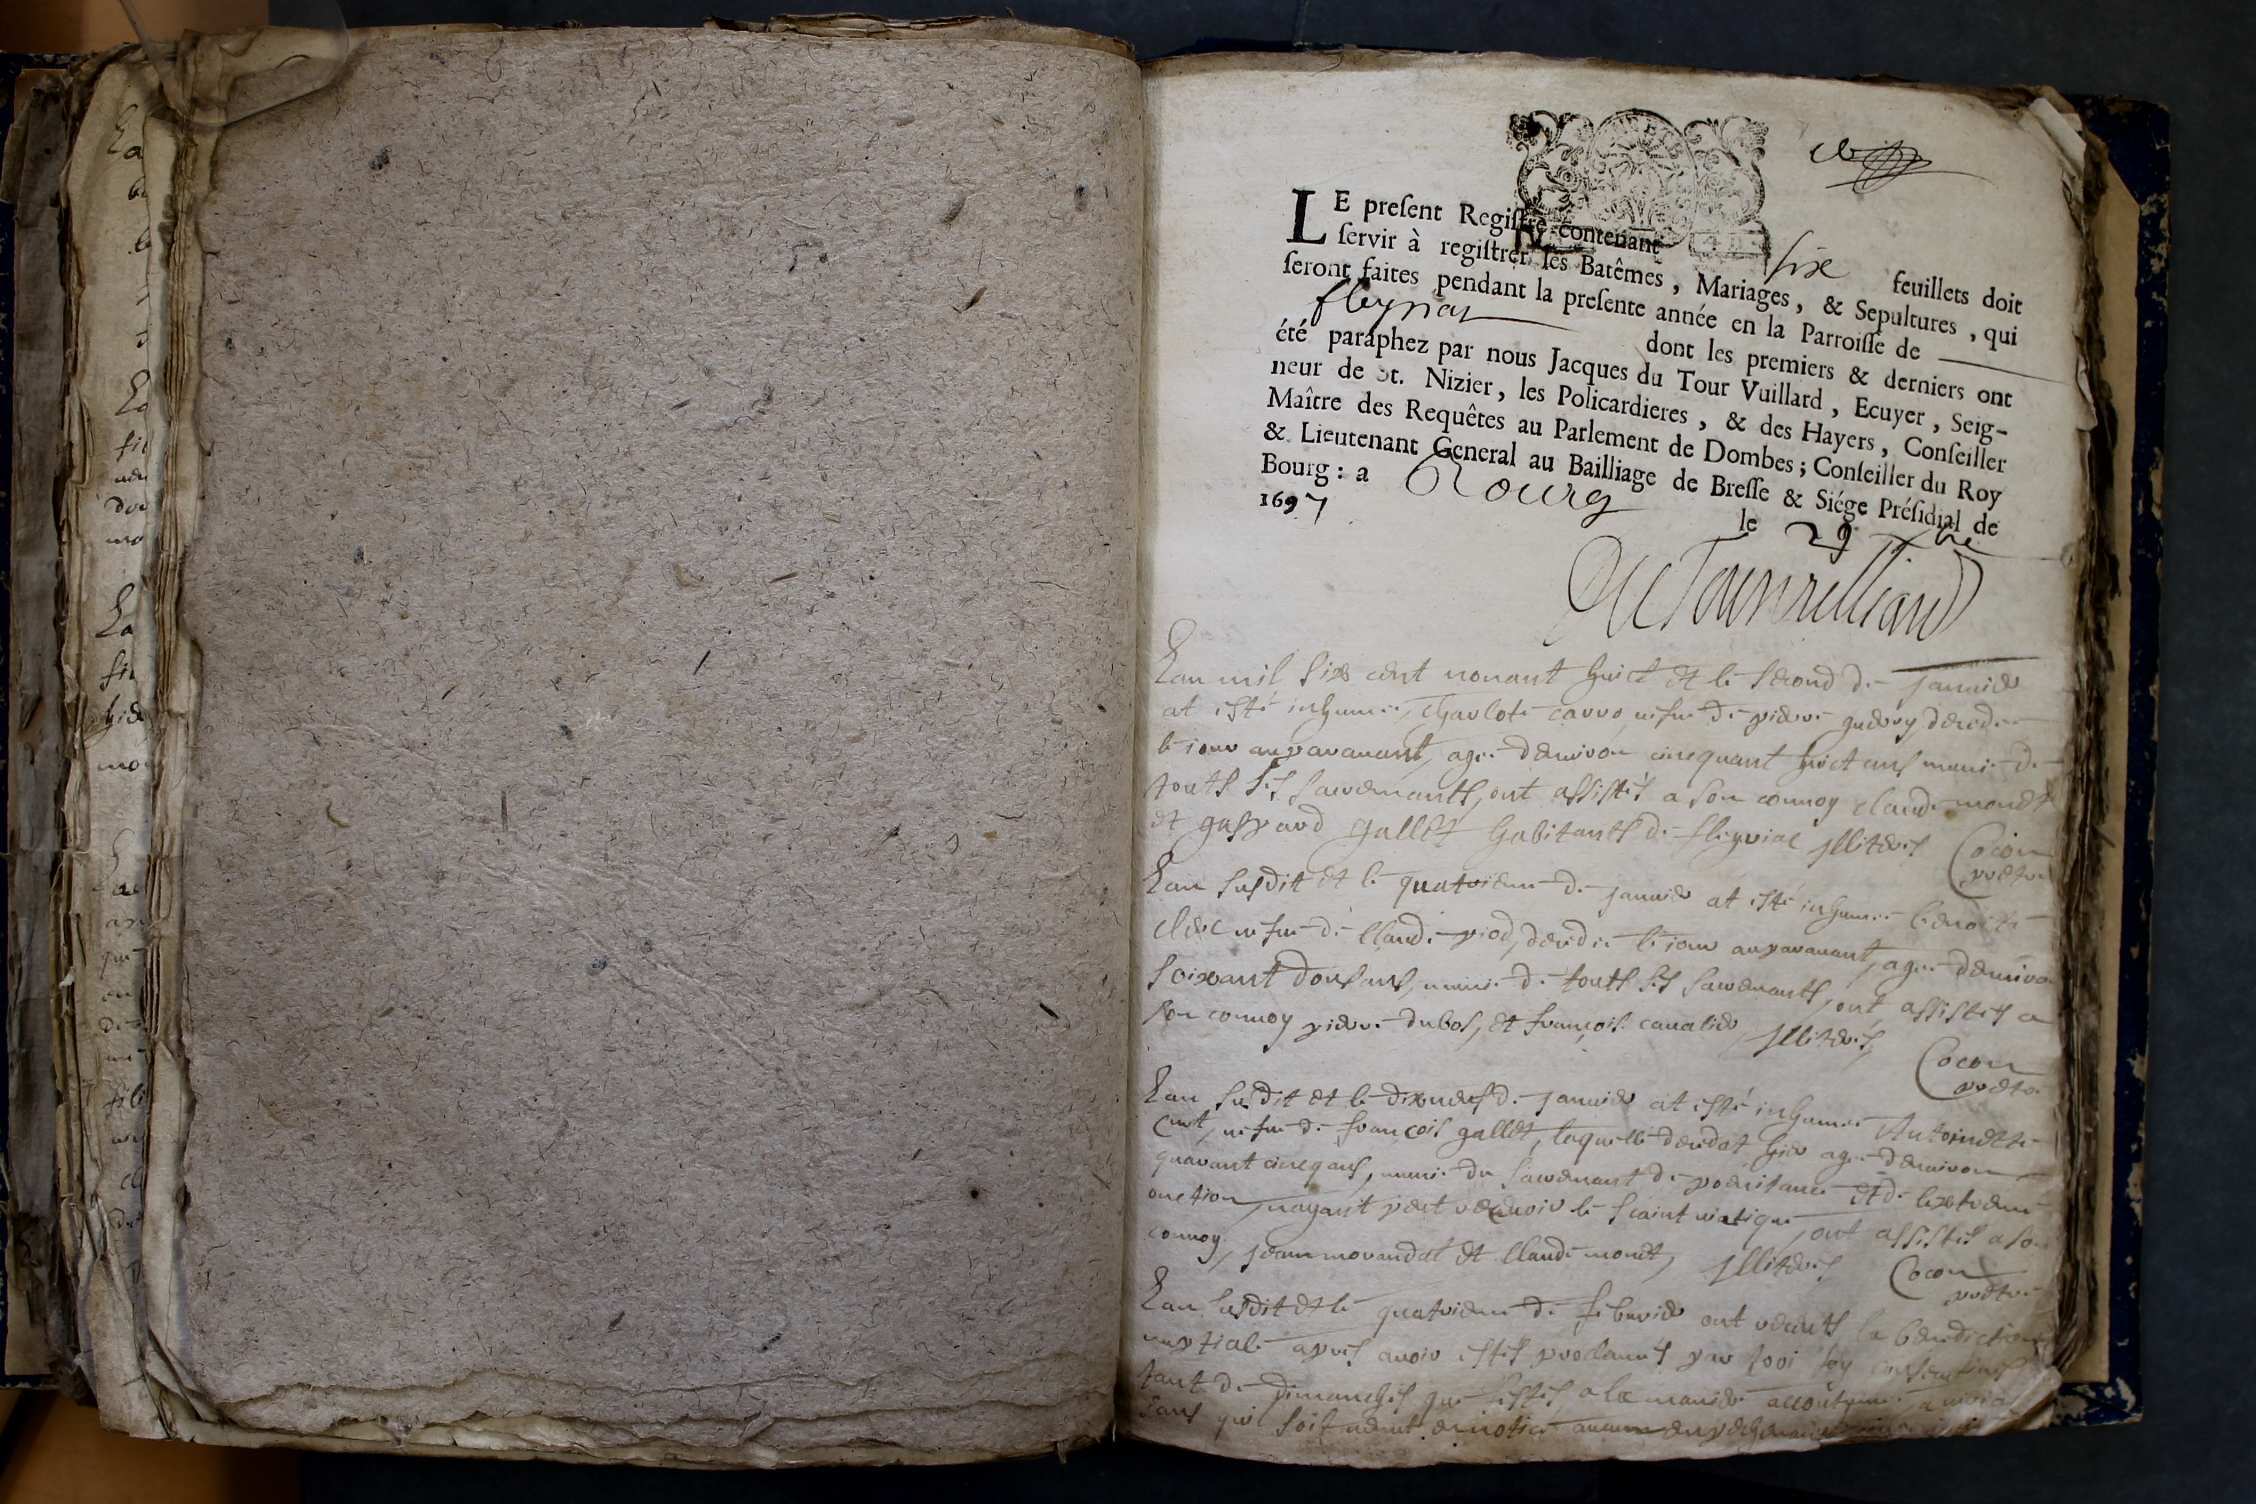 LE present Registre contenant six feuillets doit
servir à registrer les Batêmes, Mariages, & Sepultures, qui
seront faites pendant la presente année en la Parroisse de
fleyriat dont les premiers & derniers ont
été paraphez par nous Jacques du Tour Vuillard, Ecuyer, Seig-
neur de St. Nizier, les Policardieres, & des Hayers, Conseiller
Maître des Requêtes au Parlement de Dombes; Conseiller du Roy
& Lieutenant General au Bailliage de Bresse & Siége Présidial de
Bourg: a Bourg le 29
1697
Du Tourvuilliard
Lan mil six cent nonant huict et le second de janvier
at esté inhumee, Charlote carro vefve de pierre guerry decedee
le jour auparavant, agee denviron cinquant huict ans munie de
touts ses sacremants, ont assistés a son convoy claude monet
et gaspard gallet habitants de fleyriac illiterés Cocon
pretre
Lan susdit et le quatrieme de janvier at esté inhumee benoite
clerc vefve de Claude piod, decedee le jour auparavant, agee denviron
soixant dous ans, munie de touts ses sacremants, ont assistes a
son convoy pierre dubos, et françois cavalier illiterés, Cocon
pretre
Lan susdit et le dixneuf de janvier at esté inhumee Antoinette
Curt, vefve de francois gallet, laquelle decedat hier agee denviron
quarant cincq ans, munie du sacremant de poenitance et de lextreme
onction, nayant peut recevoir le sciaint viatique, ont assistes a son
convoy, jean morandat et Claude monet, illiterés Cocon
pretre
Lan susdit et le quatrieme de febvrier ont receuts la benediction
nuptiale apres avoir estés proclamés par troi foy consecutives
tant de dimanches que festes, a la maniere accoutumee,
sans qui soit venut en notice aucun